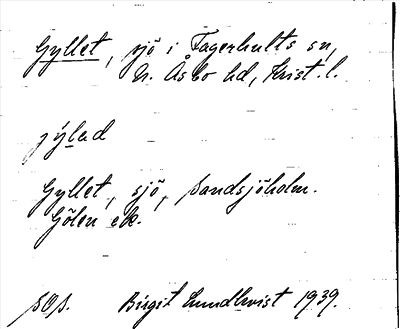 Gyllet, sjö i Fagerhults sn,
N. Åsbo hd, Krist. l.
Gyllet, sjö, Sandsjöholm.
Gölen ek.
Birgit Lundkvist 1939.